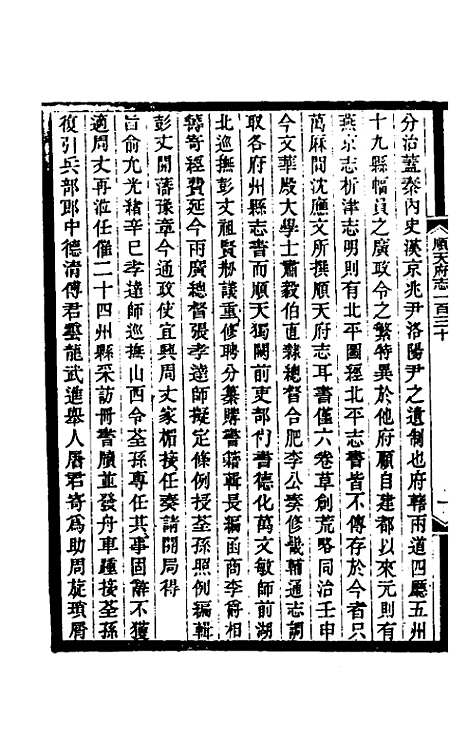 順天府志一百三十
一
分治蓋秦內史漢京兆尹洛陽尹之遺制也府轄兩道四廳五州
十九縣幅員之廣政令之繁特異於他府願自建都以來元則有
燕京志析津志明則有北平圖經北平志書皆不傳存於今者只
萬厤間沈應文所撰順天府志耳書僅六卷草創荒略同治壬申
今文華殿大學士肅毅伯直隸總督合肥李公奏修畿輔通志調
取各府州縣志書而順天獨闕前吏部尚書德化萬文敏師前湖
北巡撫彭丈祖賢剏議重修聘分纂購書籍輯長編函商李爵相
籌寄經費延今兩廣總督張孝達師擬定條例授荃孫照例編輯
彭丈開藩豫章今通政使宜興周丈家楣接任奏請開局得
旨俞允光緒辛巳孝達師巡撫山西令荃孫專任其事固辭不獲
適周丈再涖任催二十四州縣采訪冊書牘並發舟車踵接荃孫
復引兵部郎中德清傅君雲龍武進舉人屠君寄爲助周旋瑣屑